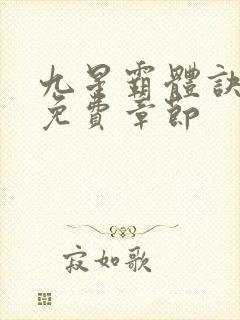 九星霸體訣
免費章節
寂如歌